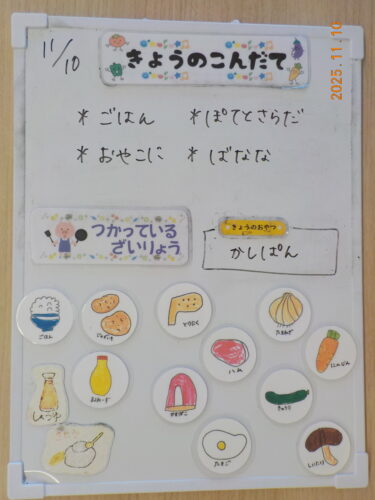 11/10
きょうのこんだて
2025.11.10
*ごはん *ぽてとさらだ
*おやこに *ばなな
つかっている
ざいりょう
きょうのおやつ
かしぱん
ごはん
じゃがいも
とりにく
たまねぎ
にんじん
ハム
しょうゆ
まよねーず
かまぼこ
きゅうり
さとう
たまご
しいたけ